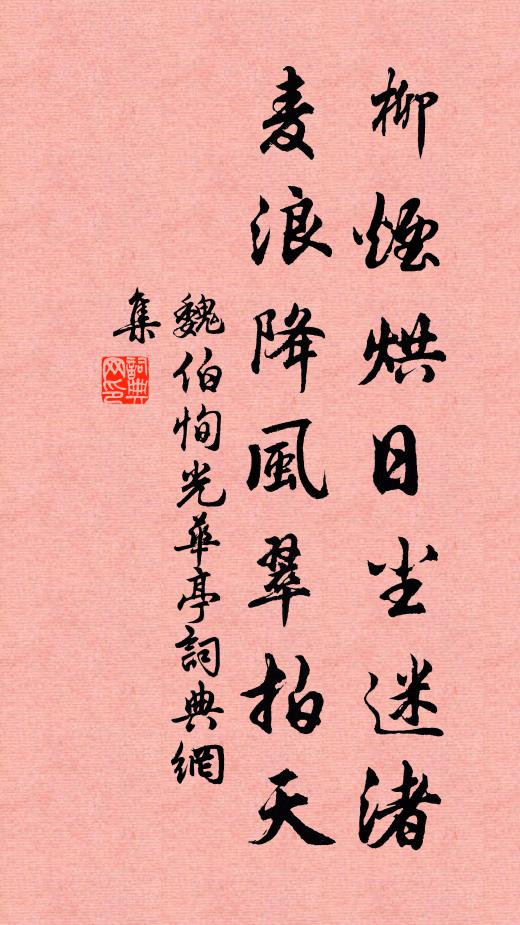 柳煙烘日尘迷渚
麦浪降風翠拍天
魏伯恂光華亭詞典網
集
詞典
网印